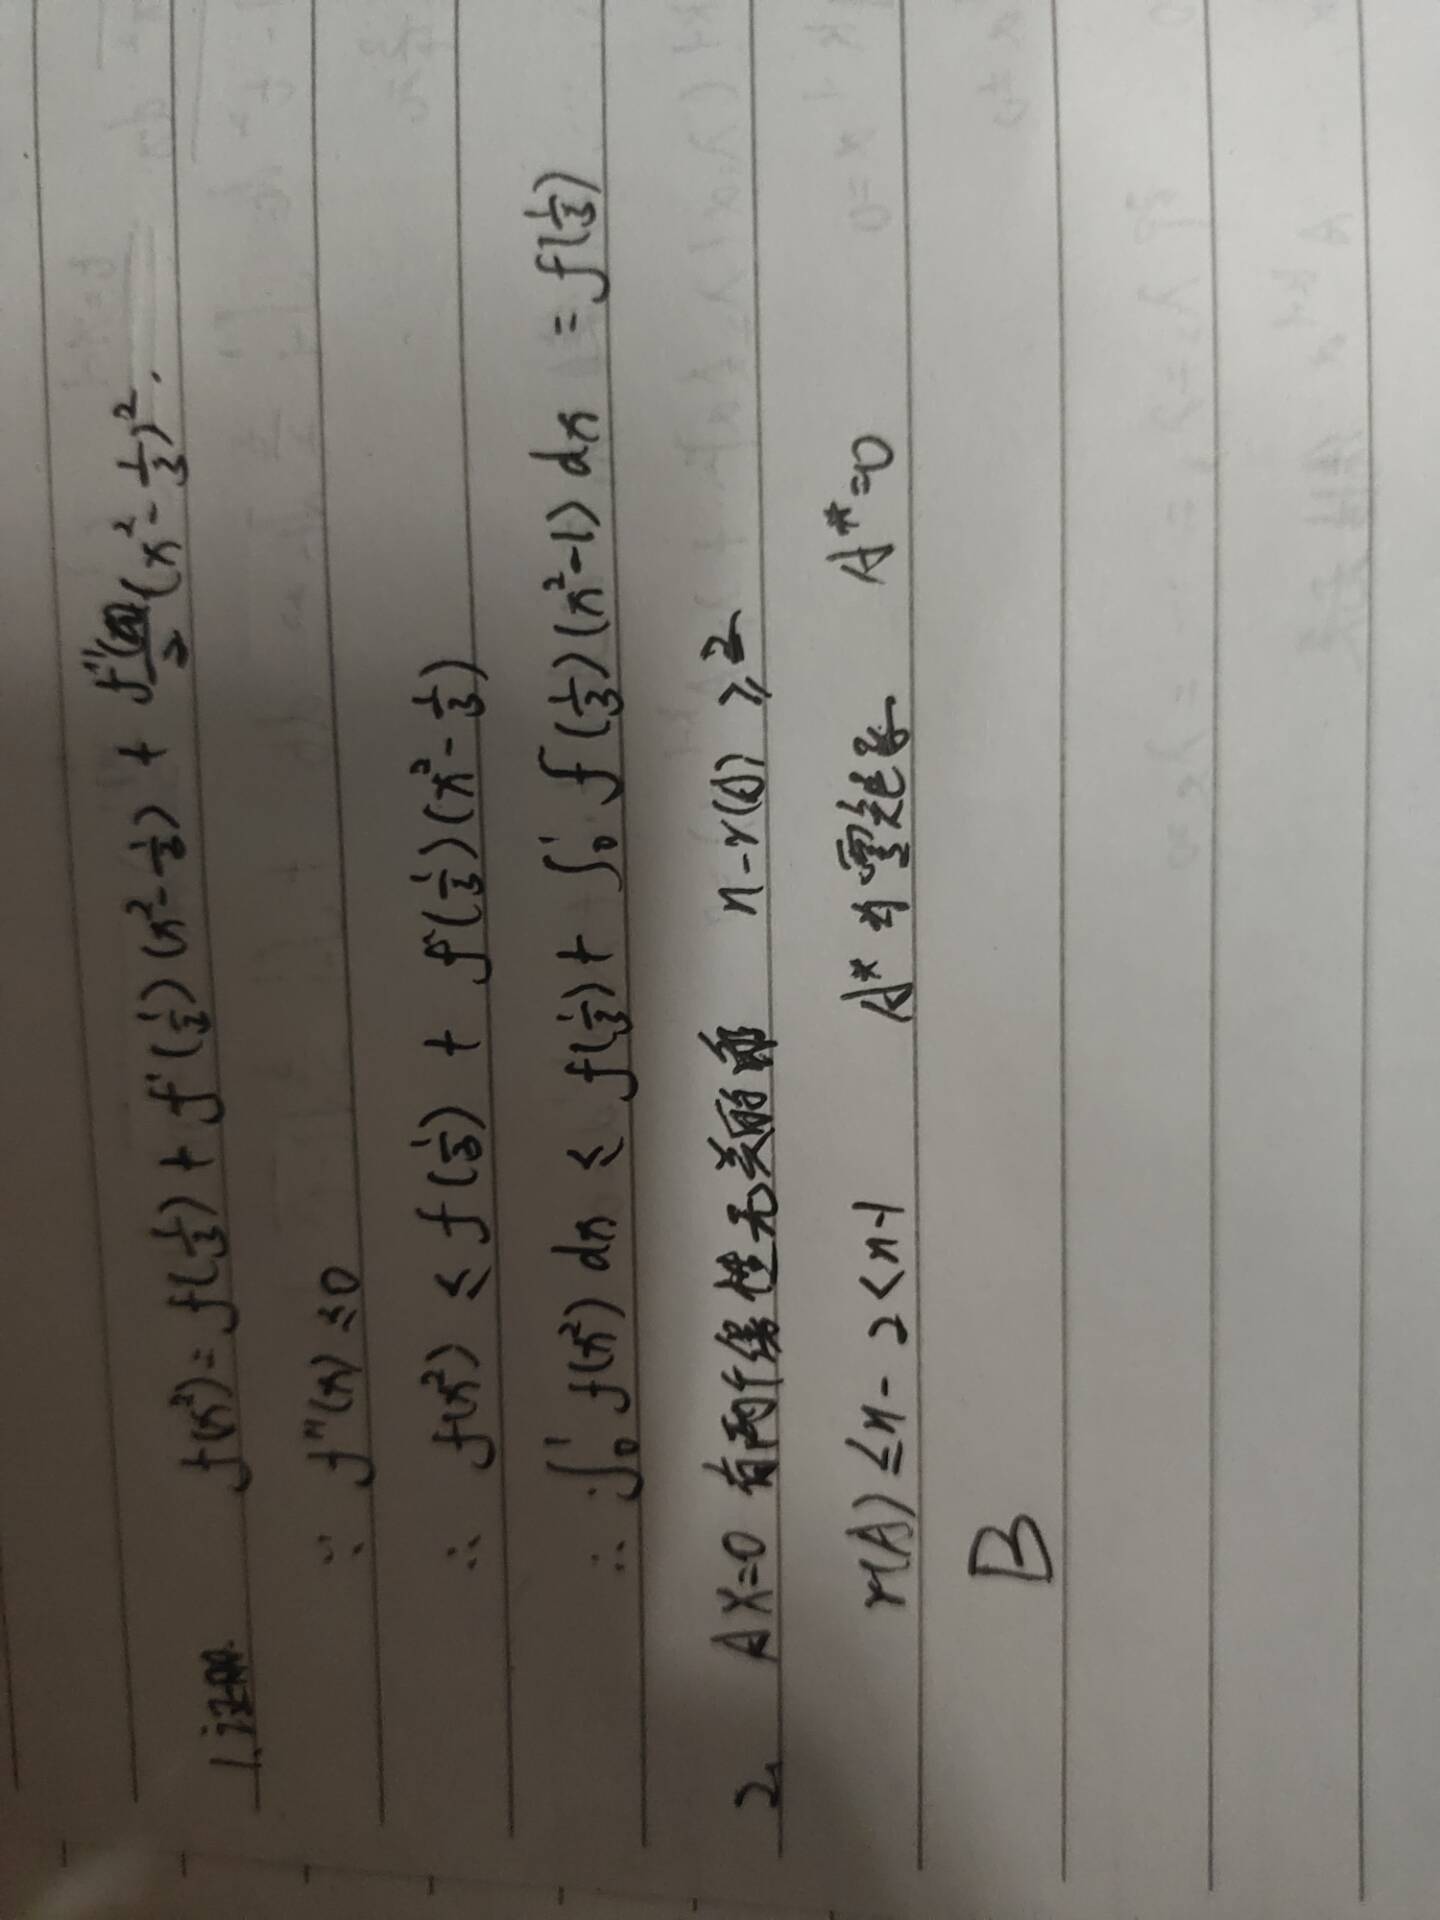 1.证明 f(x²)=f(1/3)+f'(1/3)(x²-1/3)+f''(ξ)/2(x²-1/3)².
∵ f''(x)≤0
∴ f(x²)≤f(1/3)+f'(1/3)(x²-1/3)
∴ ∫₀¹f(x²)dx≤f(1/3)+∫₀¹f(1/3)(x²-1)dx=f(1/3)
2. AX=0 有两个线性无关的解 n-r(A)≥2
r(A)≤n-2<n-1 A*为零矩阵 A*=0
B